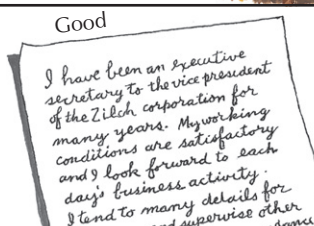 Good
I have been an executive
secretary to the vice president
of the Zilch corporation for
many years. My working
conditions are satisfactory
and I look forward to each
day's business activity.
I tend to many details for
and supervise other